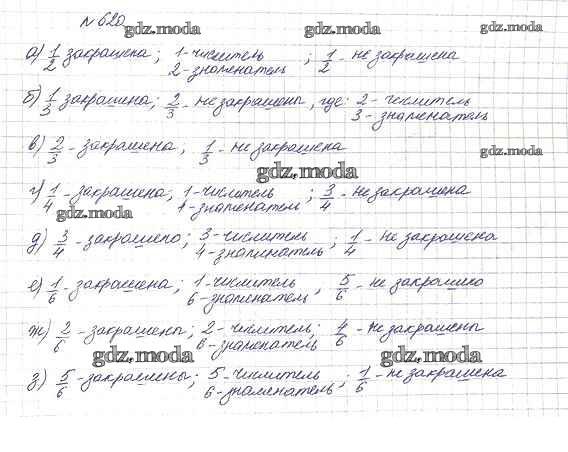 № 620
gdz.moda gdz.moda gdz.moda
а) 1/2 закрашена; 1-числитель ; 1/2 - не закрашена
2-знаменатель
б) 1/3 закрашена; 2/3 - не закрашены, где: 2 - числитель
3 - знаменатель
в) 2/3 - закрашена, 1/3 - не закрашена
gdz.moda
gdz.moda
г) 1/4 - закрашена; 1-числитель ; 3/4 - не закрашена
gdz.moda -знаменатель
д) 3/4 - закрашено; 3-числитель ; 1/4 - не закрашена
4-знаменатель
е) 1/6 - закрашена; 1-числитель ; 5/6 - не закрашено
6-знаменатель
ж) 2/6 - закрашены; 2 - числитель; 4/6 - не закрашены
6-знаменатель
gdz.moda gdz.moda
з) 5/6 - закрашены; 5 - числитель ; 1/6 - не закрашена
6-знаменатель